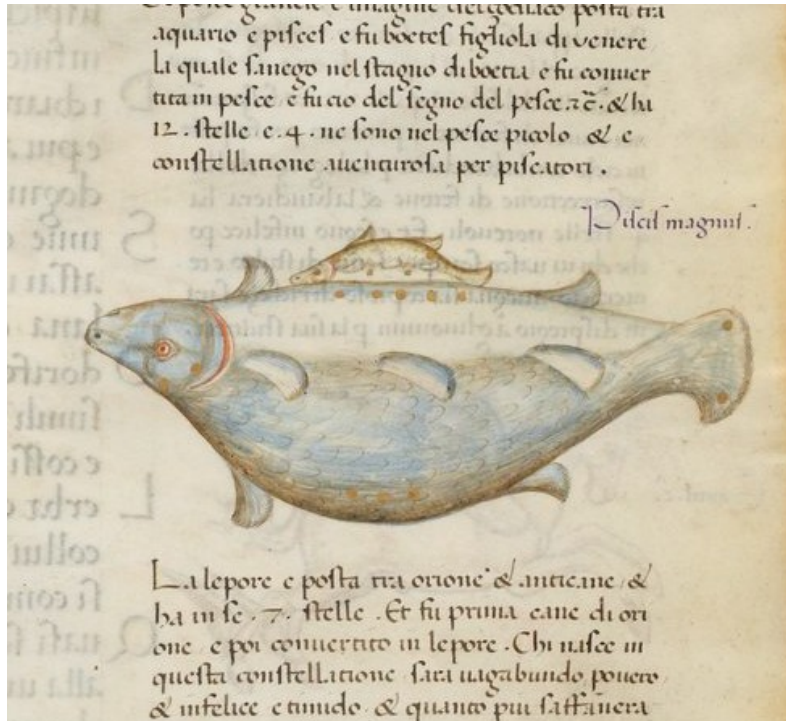 grande e imagine del zodiaco posta tra
aquario e pisces e fu boetes figliola di venere
la quale sanego nel stagno di boetia e fu conuer
tita in pesce e fu cio del segno del pesce. & ha
12. stelle e .4. ne sono nel pesce picolo & e
constellatione auenturosa per piscatori.
Piscis magnus.
La lepore e posta tra orione & anticane &
ha in se .7. stelle. Et fu prima cane di ori
one e poi conuertito in lepore. Chi nasce in
questa constellatione sara uagabundo pouero
& infelice e timido & quanto piu saffanera